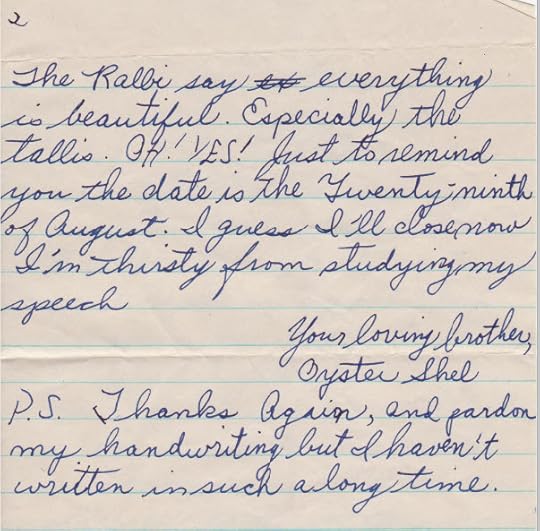 2
The Rabbi say everything
is beautiful. Especially the
tallis. OH! YES! Just to remind
you the date is the Twenty-ninth
of August. I guess I'll close now
I'm thirsty from studying my
speech
Your loving brother,
Oyster Shel
P.S. Thanks Again, and pardon
my handwriting but I haven't
written in such a long time.